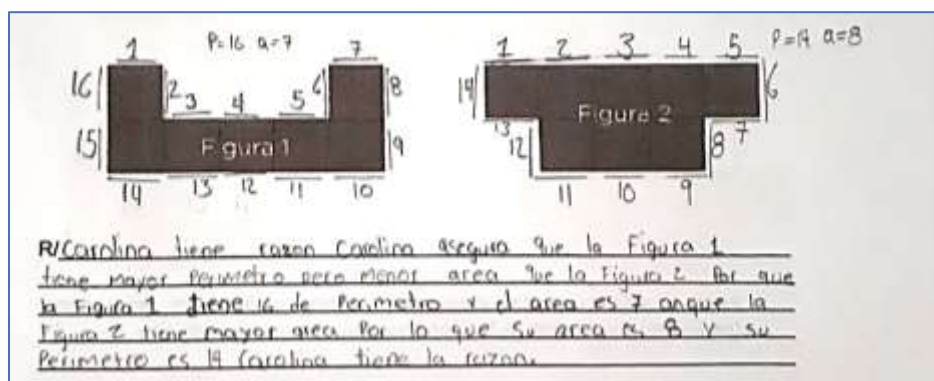 1 P=16 a=7 7
16 2 3 4 5 6 8
15 Figura 1 9
14 13 12 11 10
1 2 3 4 5 P=14 a=8
14 Figura 2 6
13 12 8 7
11 10 9
R/Carolina tiene razon Carolina asegura que la Figura 1
tiene mayor Perimetro pero menor area que la Figura 2 Por que
la Figura 1 tiene 16 de Perimetro y el area es 7 anque la
Figura 2 tiene mayor area Por lo que su area es 8 y su
Perimetro es 14 Carolina tiene la razon.